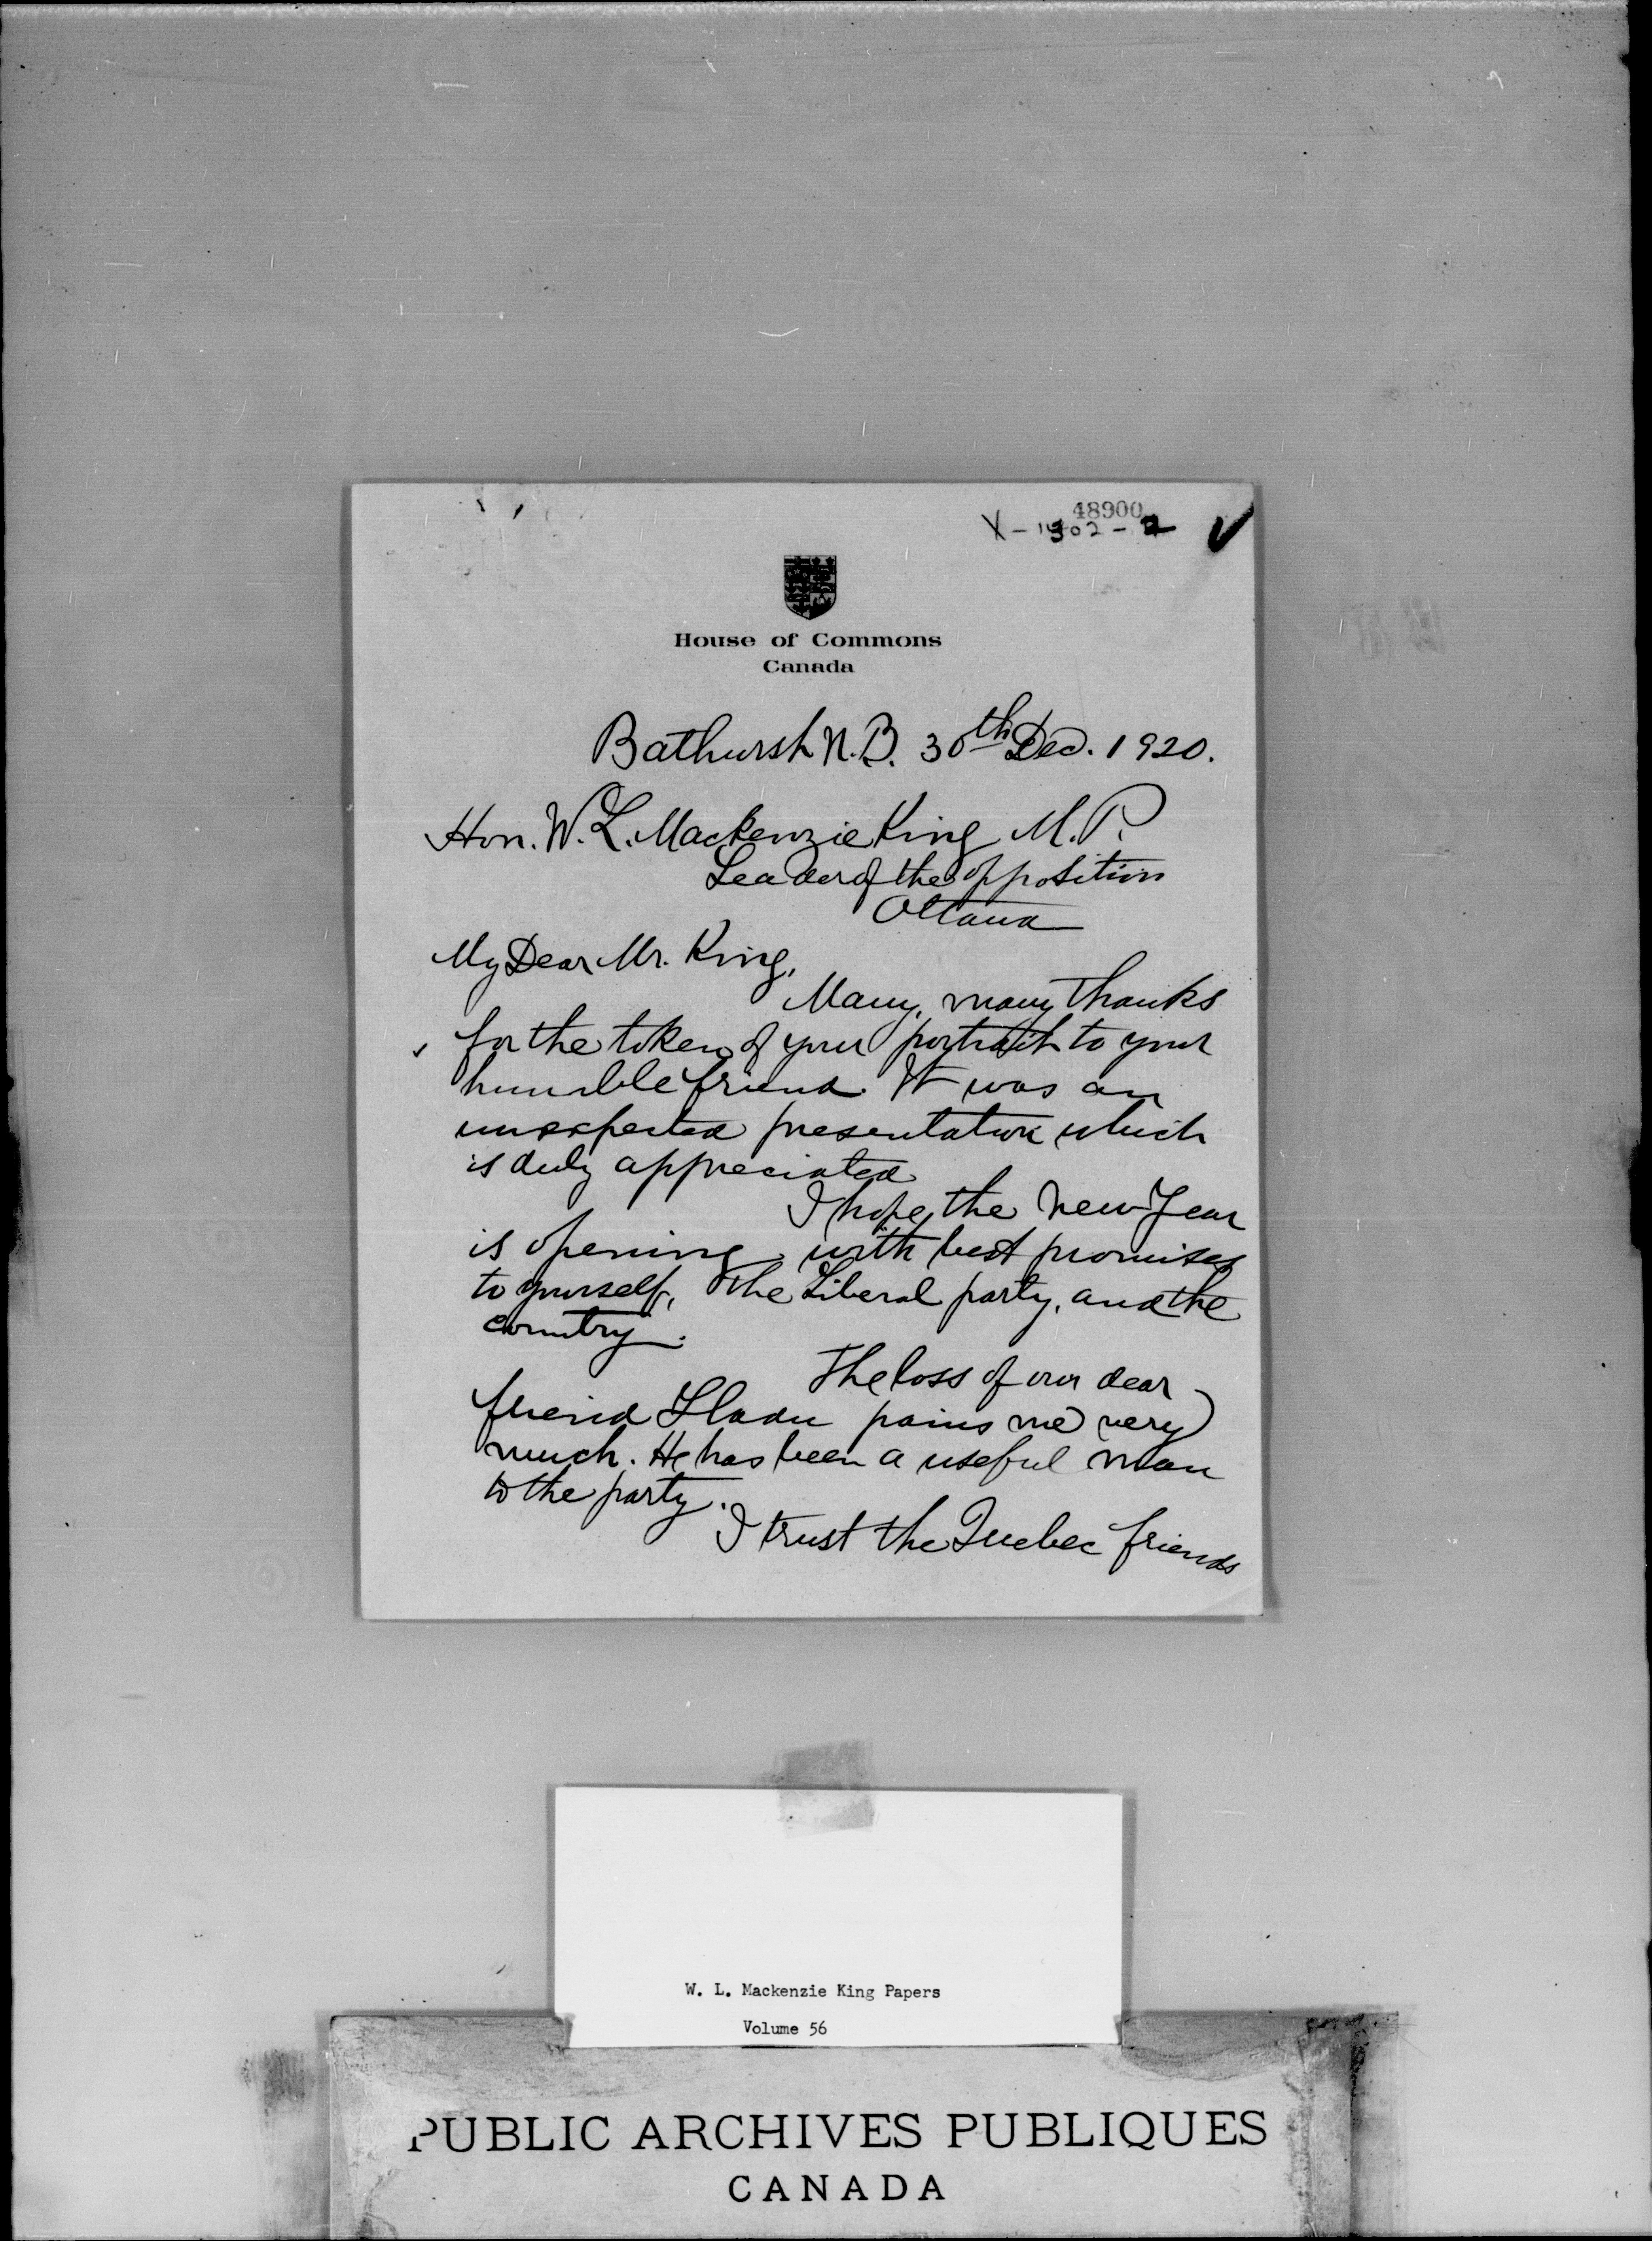 48900
X-1902-2
House of Commons
Canada
Bathurst N.B. 30th Dec. 1920.
Hon. W. L. Mackenzie King M.P.
Leader of the opposition
Ottawa
My Dear Mr. King,
Many, many thanks
for the token of your portrait to your
humble friend. It was an
unexpected presentation which
is duly appreciated
I hope the New Year
is opening with best promises
to yourself, the Liberal party, and the
country.
The loss of our dear
friend pains me very
much. He has been a useful man
to the party.
I trust the Quebec friends
W. L. Mackenzie King Papers
Volume 56
PUBLIC ARCHIVES PUBLIQUES
CANADA